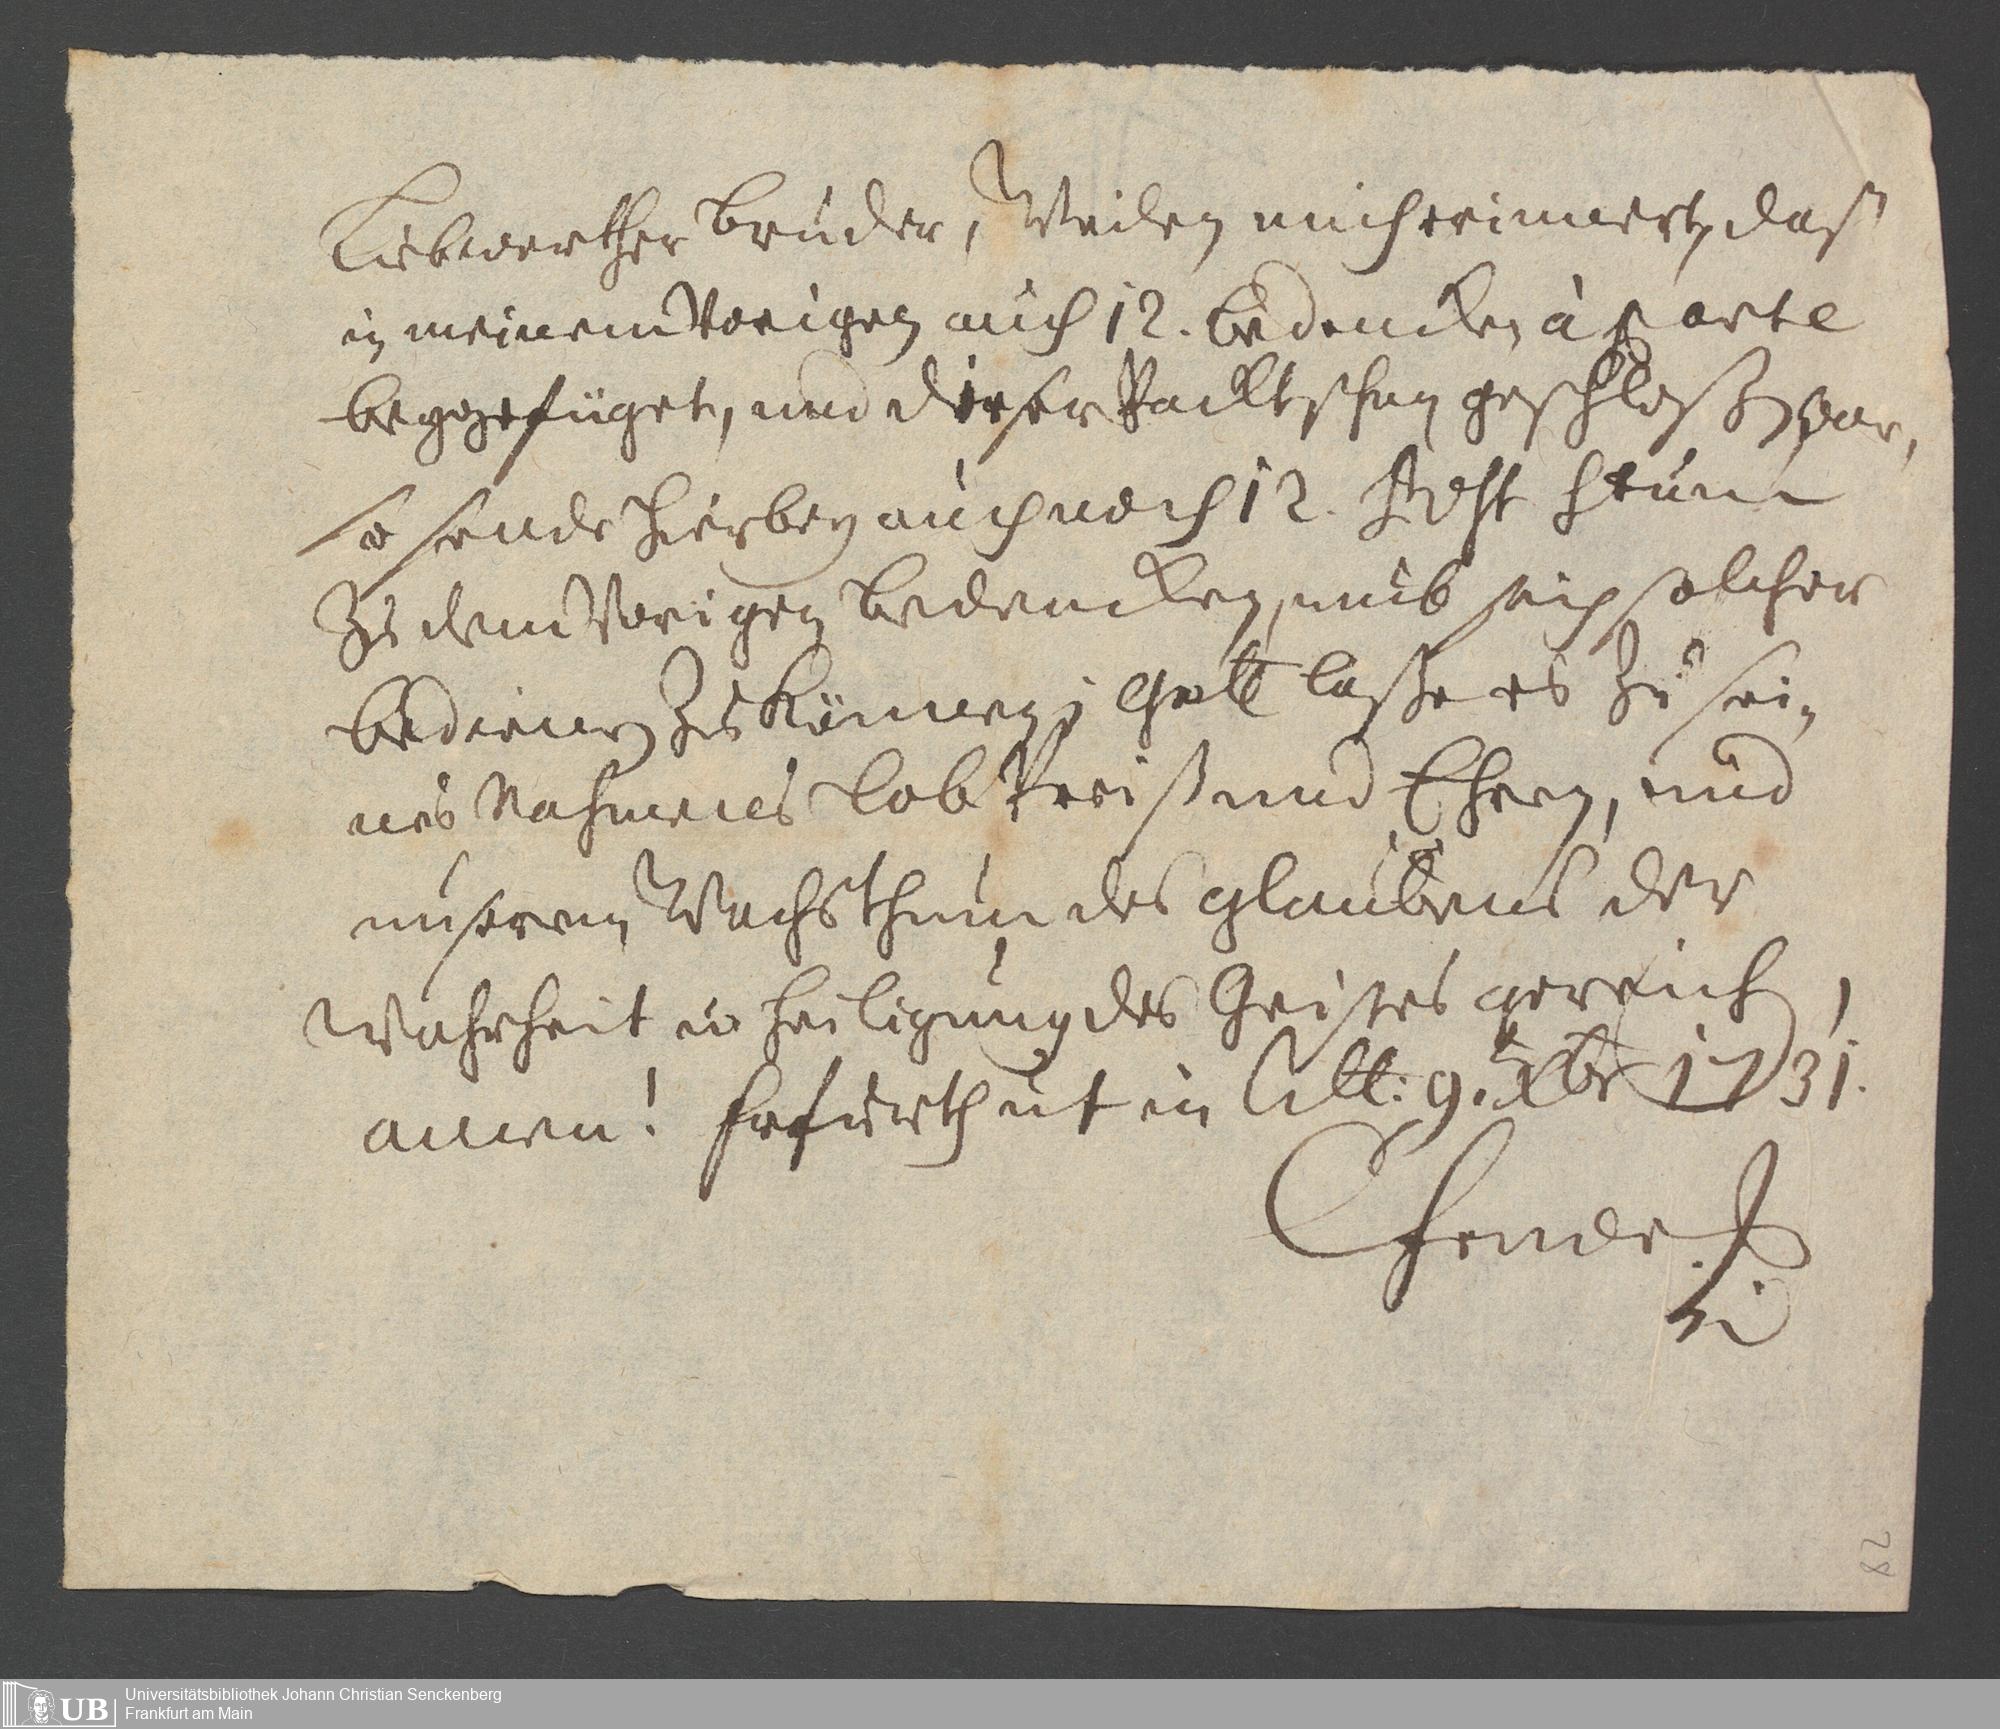 Liebwerther Bruder, Weilen mich erinnert, daß
in meinem Vorigen auch 12. Bedencken à parte
beygefüget, und dieser Packt schon geschloßen war,
so sende hierbey auch noch 12.
zu dem Vorigen Bedencken, umb sich solcher
bedienen zu können; Gott laße es zu sei-
nes Nahmens Lob Preiß und Ehren, und
unserem Wachsthum des glaubens der
Wahrheit u. heiligung des Geistes gereichen,
amen! Erfurth ut in Litt: 9. Xbr 1731.
82
UB Universitätsbibliothek Johann Christian Senckenberg
Frankfurt am Main